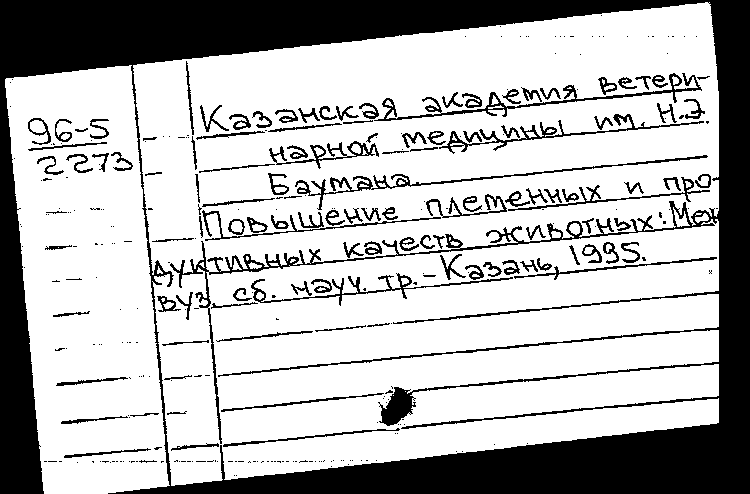 96-5
2273
Казанская академия ветери-
нарной медицины им. Н.Э.
Баумана.
Повышение племенных и про-
дуктивных качеств животных: Меж
вуз. сб. науч. тр. - Казань, 1995.